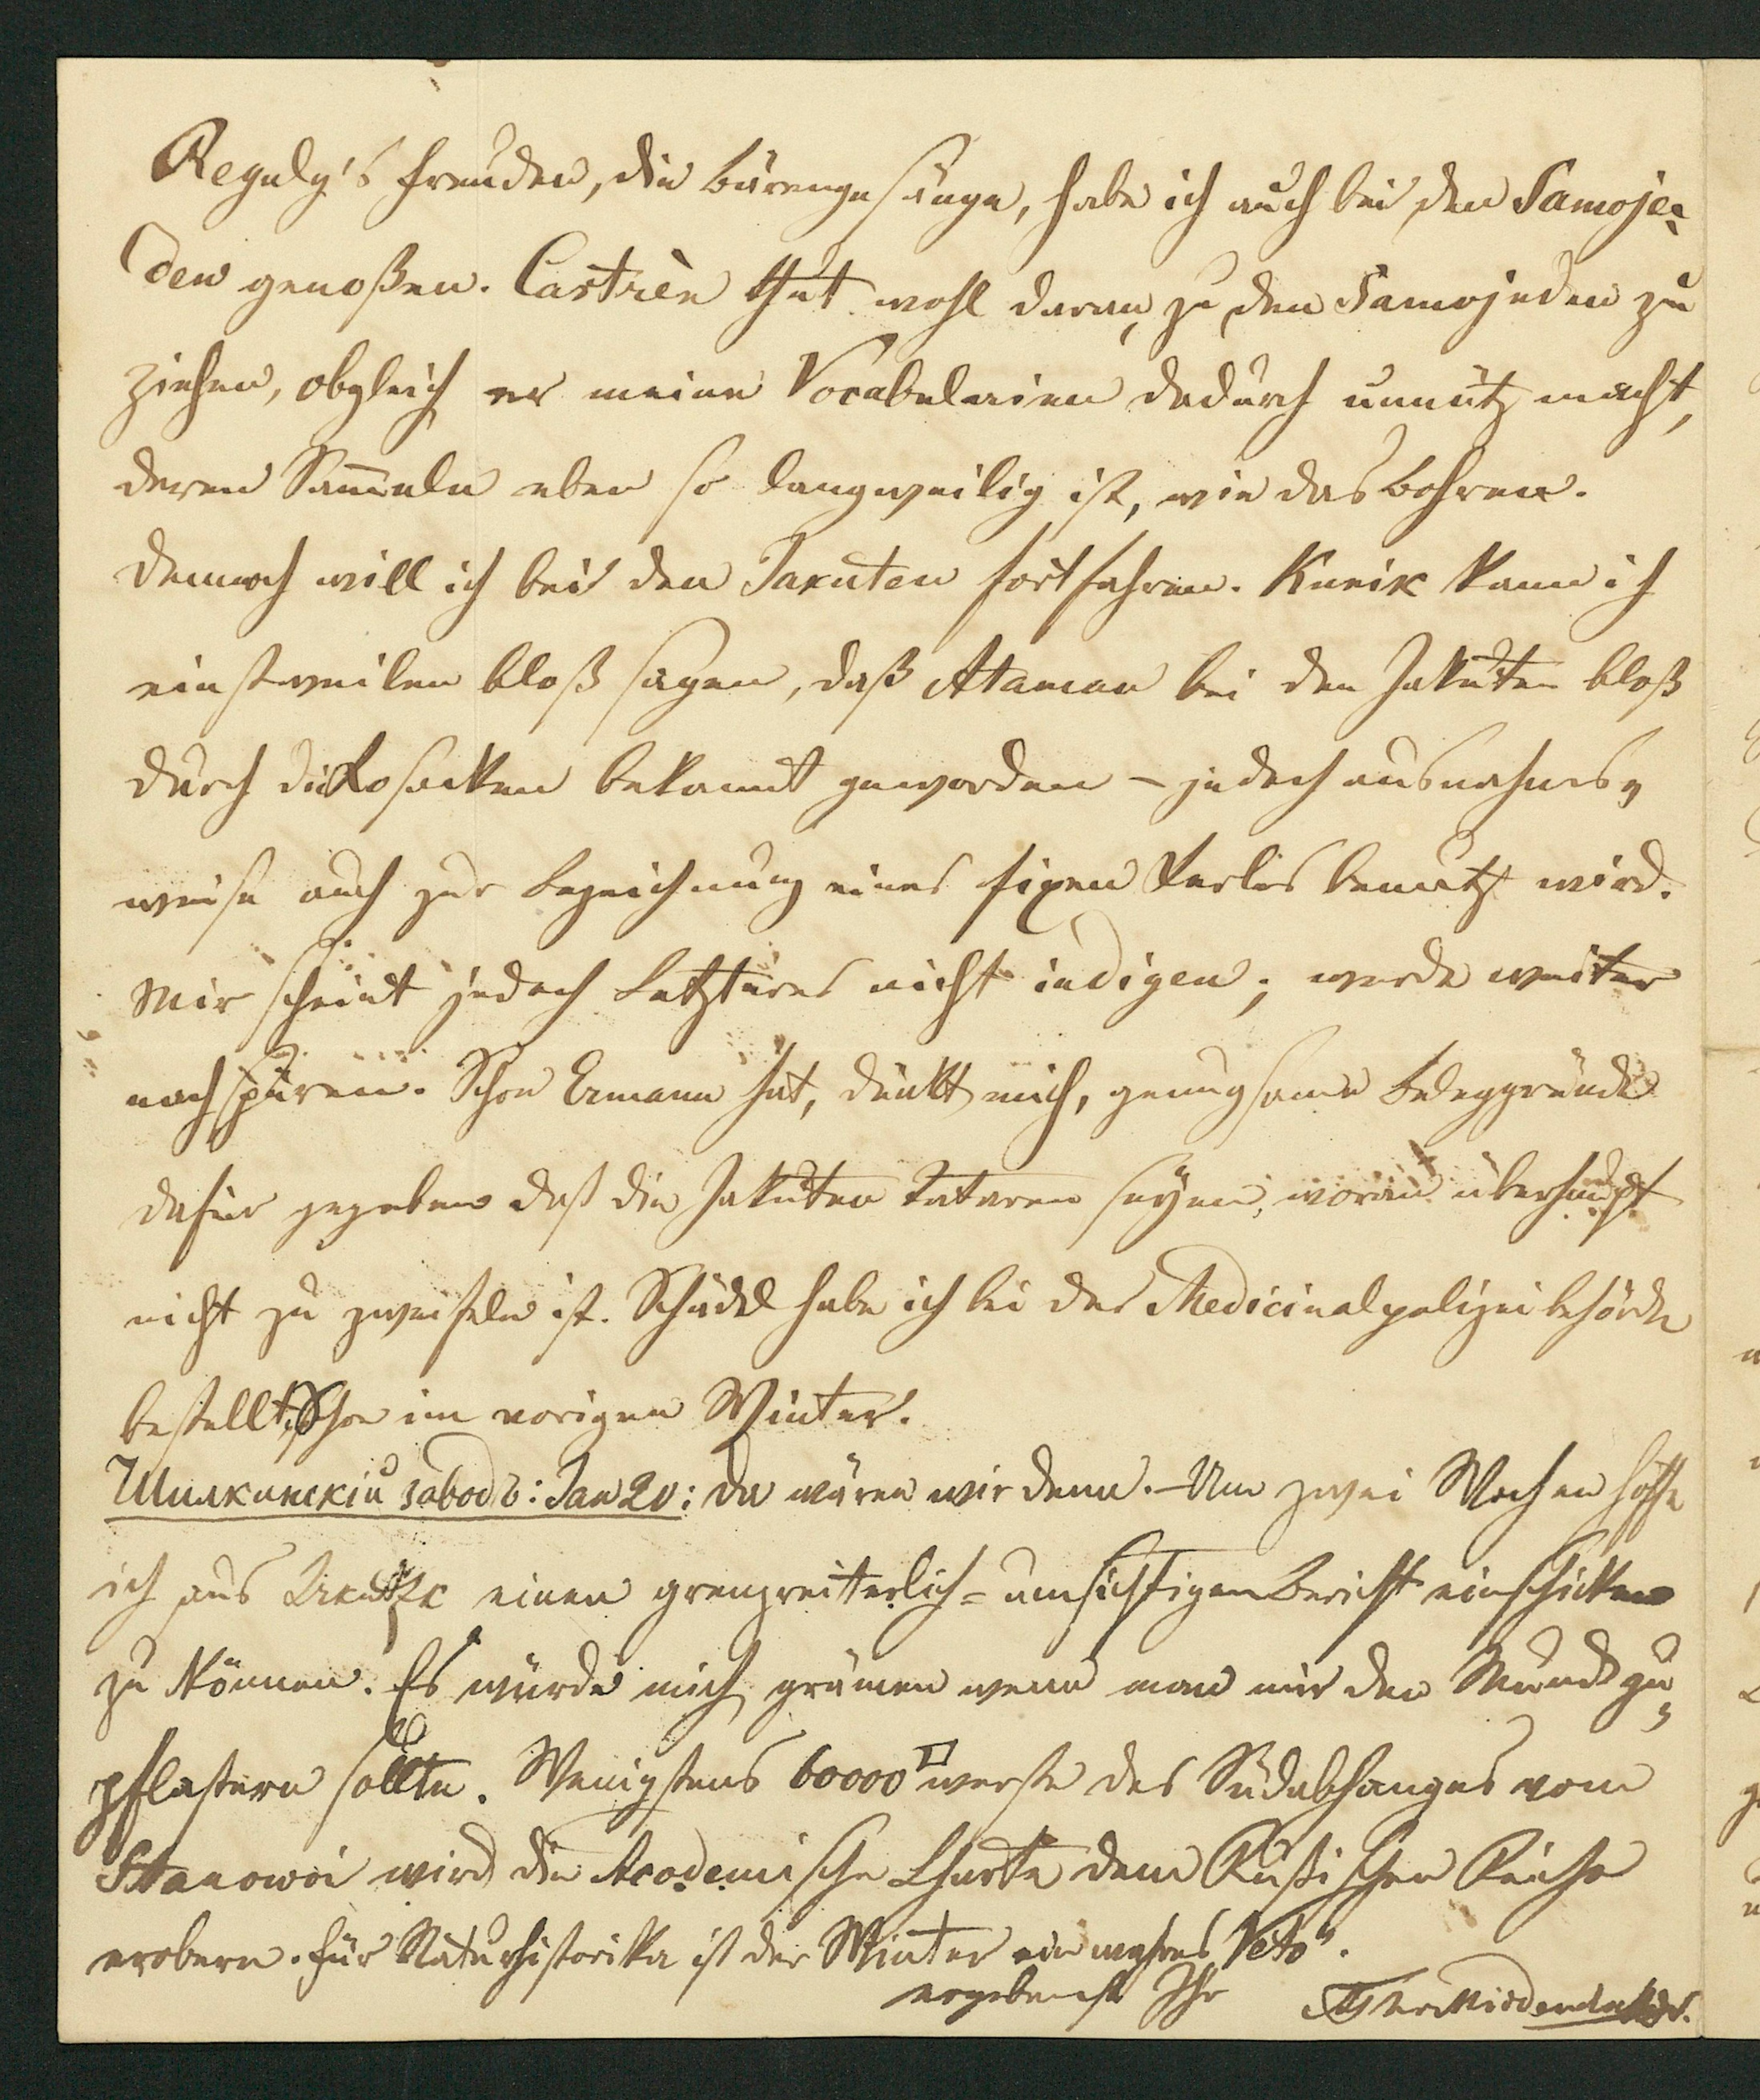 Reguly's Freuden, die Bärengesänge, habe ich auch bei den Samoje-
den genoßen. Castrèn thut wohl daran, zu den Samojeden zu
ziehen, obgleich er meine Vocabularien dadurch unnütz macht,
deren Sam̅eln eben so langweilig ist, wie das Bohren.
Dennoch will ich bei den Jakuten fortfahren. Kunik kann ich
einstweilen bloß sagen, daß Ataman bei den Jakuten bloß
durch die Kosacken bekannt geworden – jedoch ausnahms-
weise auch zur Bezeichnung eines fixen Kerles benutzt wird.
Mir scheint jedoch Letzteres nicht indigen; werde weiter
nachspüren. Schon Ermann hat, dünkt mich, genugsame Beleggründe
dafür gegeben daß die Jakuten Tataren seyen, woran überhaupt
nicht zu zweifeln ist. Schädel habe ich bei der Medicinalpolizeibehörde
bestellt, schon im vorigen Winter.
Шилкинскій заводъ: Jan 20: Da wären wir denn. – Um zwei Wochen hoffe
ich aus Irkutzk einen grenzreiterlich-umsichtigen Bericht einschicken
zu können. Es würde mich grämen wenn man mir den Mund zu-
pflastern sollte. Wenigstens 60000 □werste des Südabhanges vom
Stanowoi wird die Academische Charte dem Rußischen Reiche
erobern. Für Naturhistorika ist der Winter ein wahres Veto".
ergebenst Ihr Middendorff.